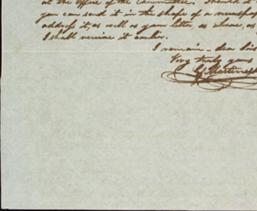 at the office of the Committee. Should it
you can send it in the shape of a newspap
address it, as well as your letter, as above, as
I shall receive it earlier.
I remain - dear Sir
Very truly yours